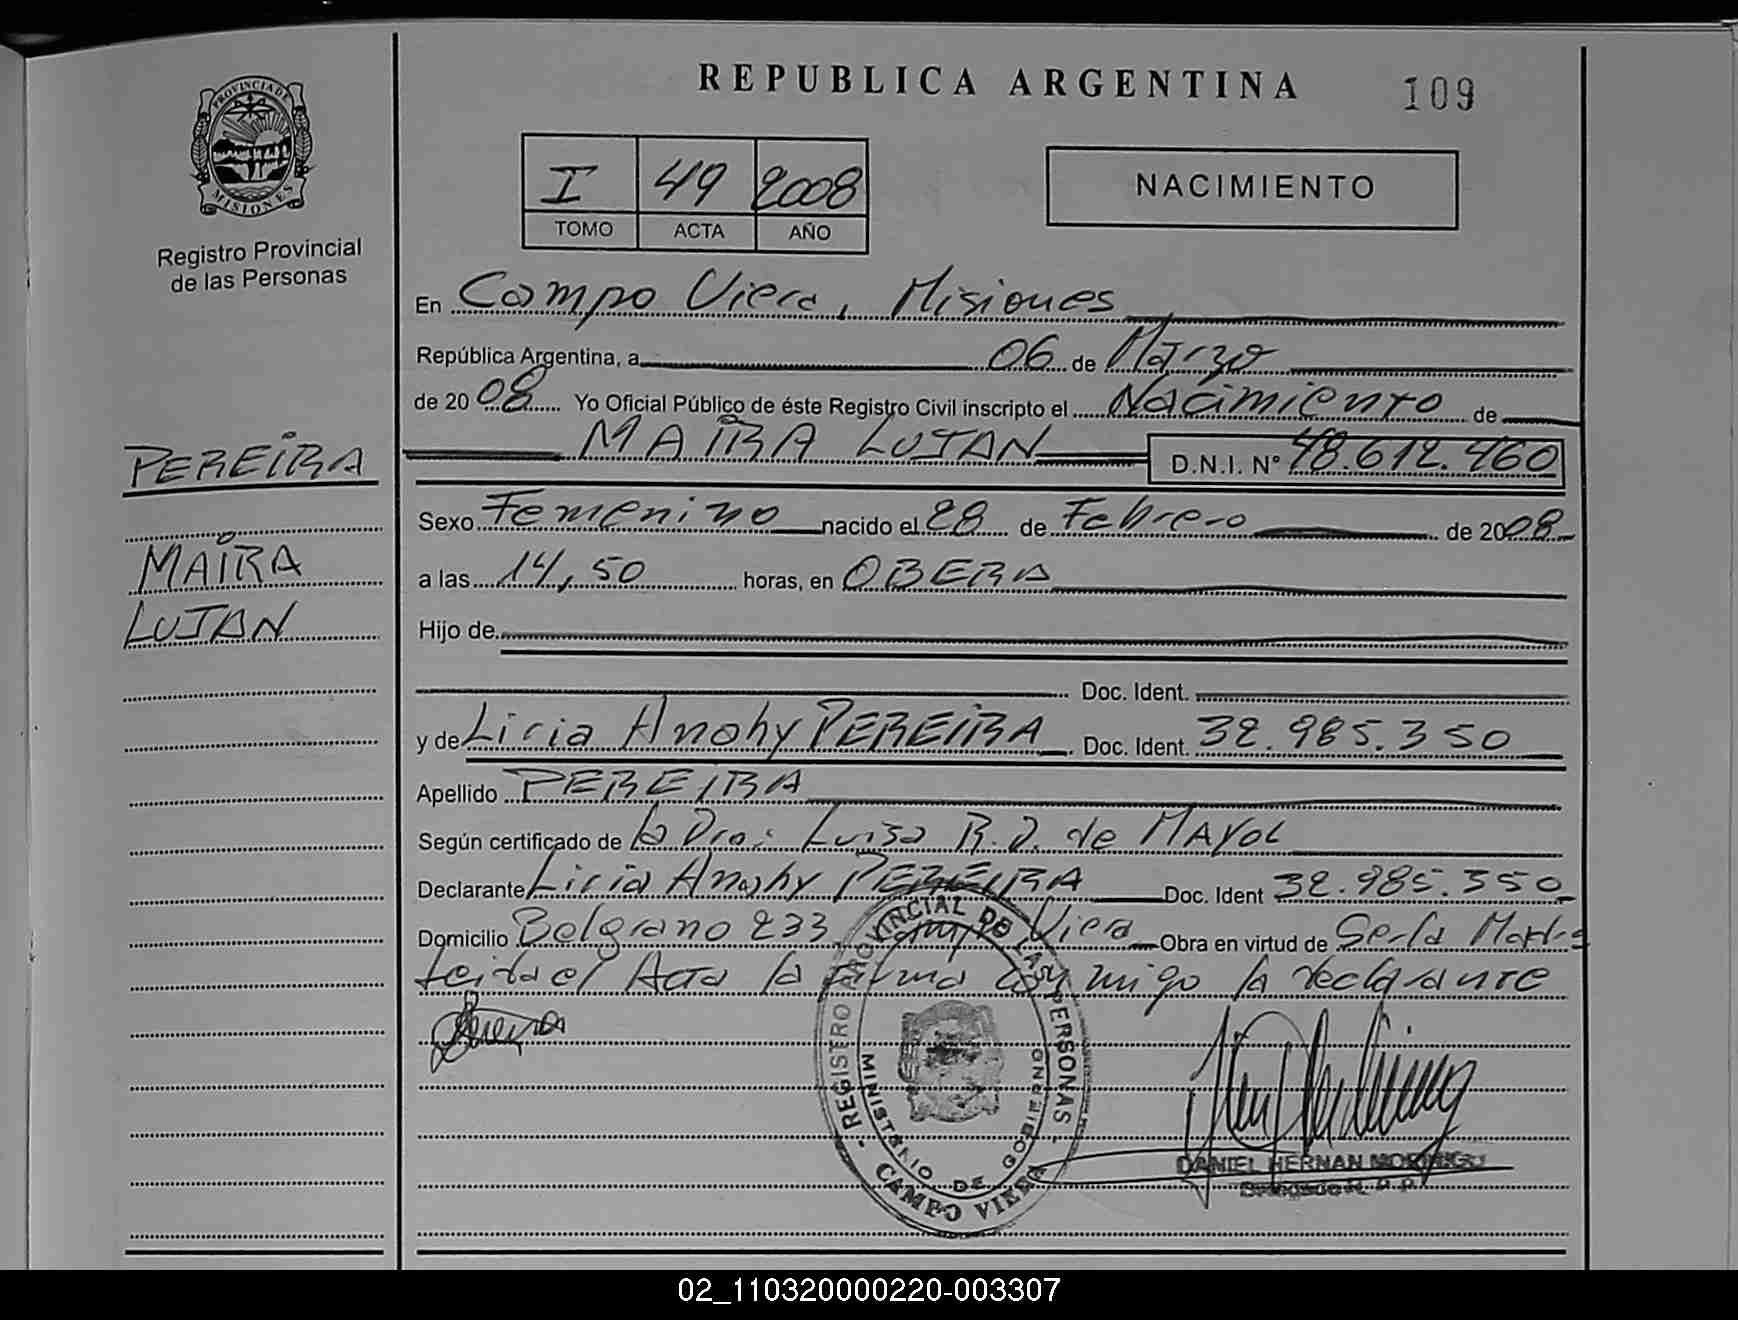 REPUBLICA ARGENTINA
109
PROVINCIA DE MISIONES
Registro Provincial
de las Personas
I 49 2008
TOMO ACTA AÑO
NACIMIENTO
En Campo Viera, Misiones
República Argentina, a 06 de Marzo
de 2008 Yo Oficial Público de éste Registro Civil inscripto el Nacimiento de
MAIRA LUJAN D.N.I. N° 48.612.460
PEREIRA
MAIRA
LUJAN
Sexo Femenino nacido el 28 de Febrero de 2008
a las 14,50 horas, en OBERA
Hijo de
Doc. Ident.
y de Liria Anahy PEREIRA Doc. Ident. 32.985.350
Apellido PEREIRA
Según certificado de la Dra: Luisa R.D. de MAYOL
Declarante Liria Anahy PEREIRA Doc. Ident 32.985.350
Domicilio Belgrano 233 Viera Obra en virtud de
Leida el Acta la firma conmigo la declarante
Pereira
REGISTRO PROVINCIAL DE LAS PERSONAS
MINISTERIO DE GOBIERNO
CAMPO VIERA
DANIEL HERNAN
02_110320000220-003307